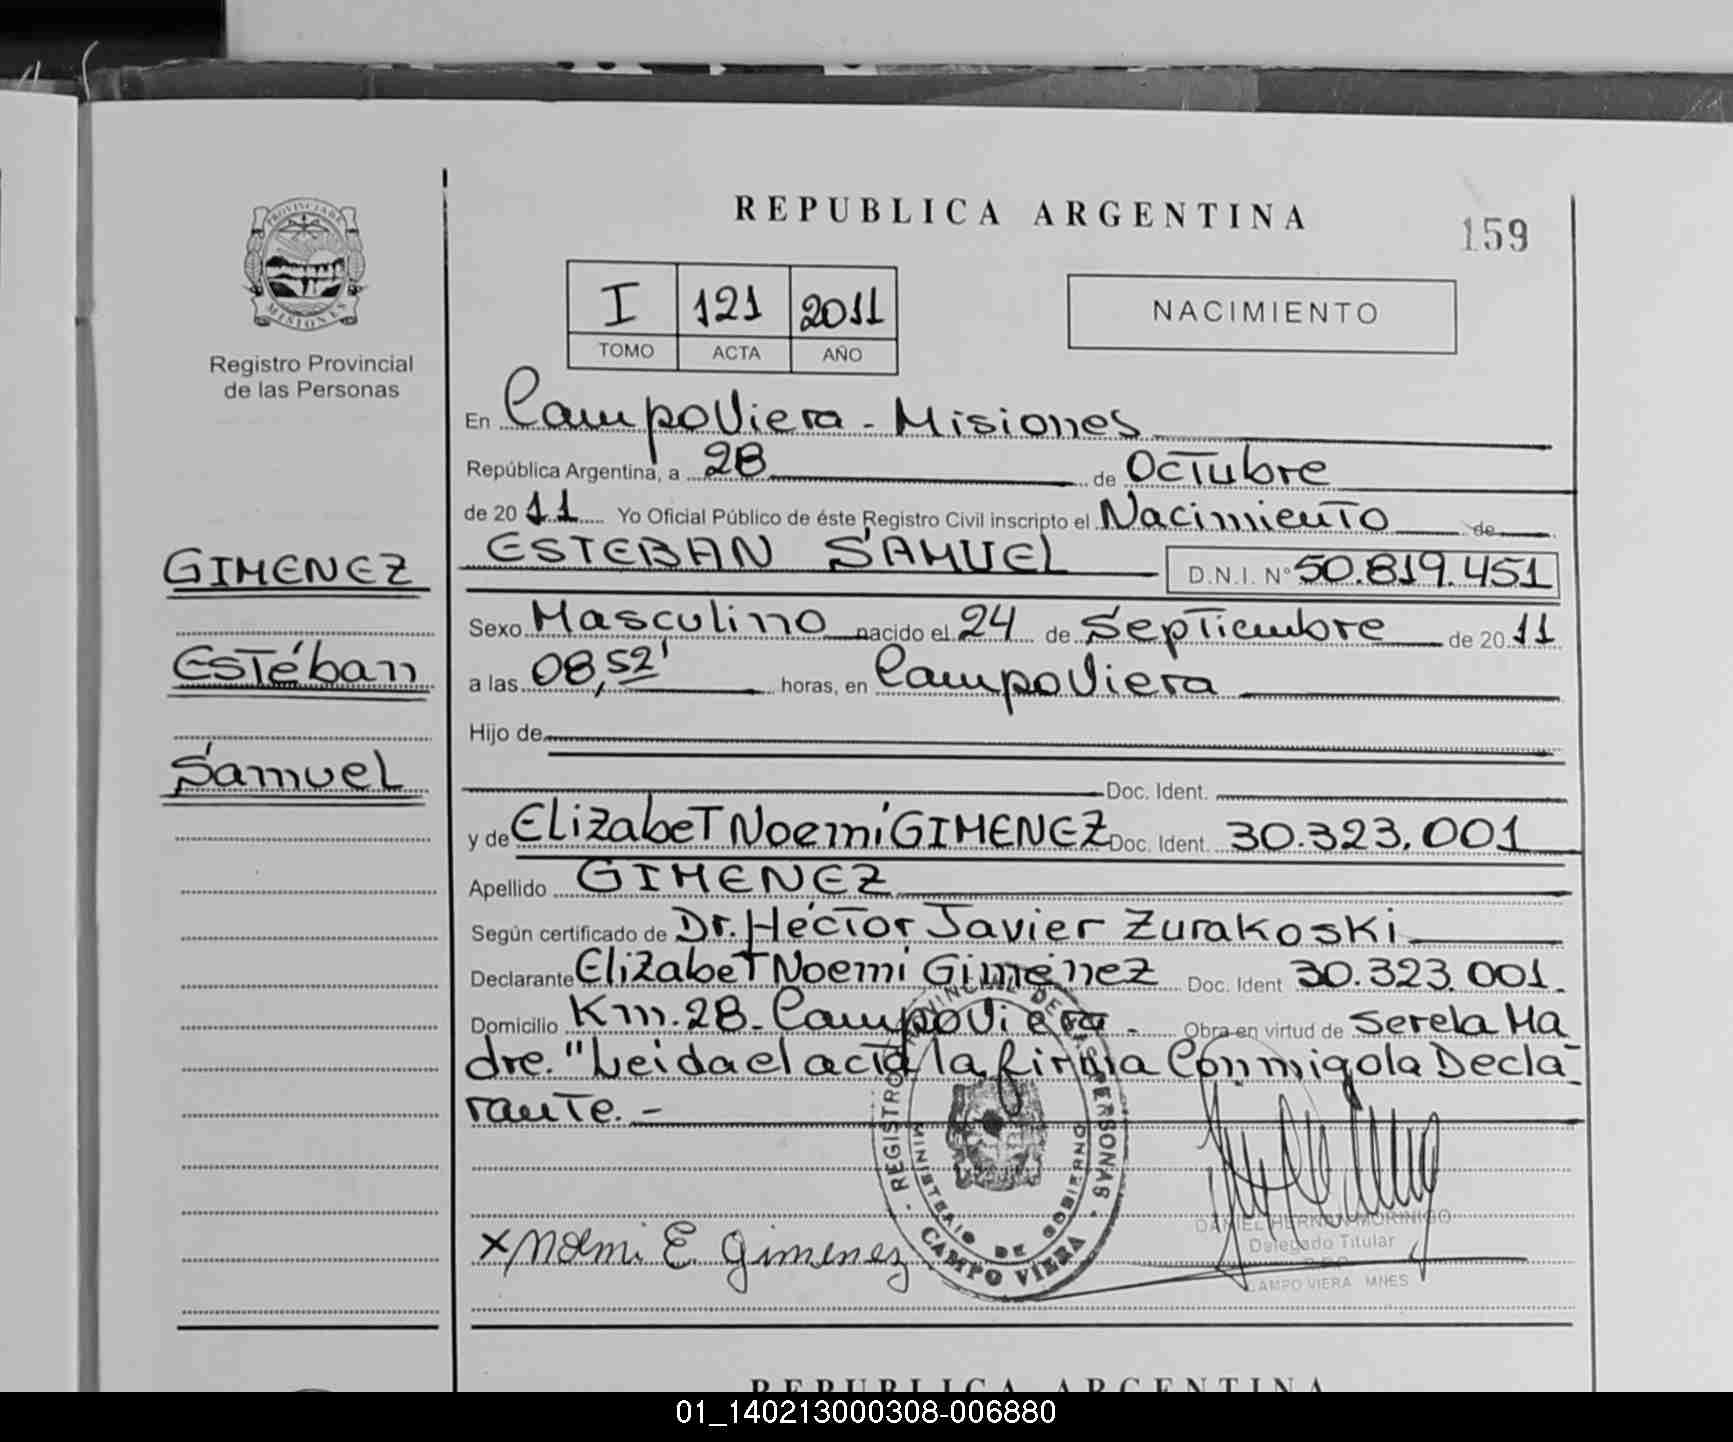 REPUBLICA ARGENTINA
159
PROVINCIA DE
MISIONES
Registro Provincial
de las Personas
I 121 2011
TOMO ACTA AÑO
NACIMIENTO
En Campo Viera - Misiones
República Argentina, a 28 de Octubre
de 2011 Yo Oficial Público de éste Registro Civil inscripto el Nacimiento de
ESTEBAN SAMUEL D.N.I. Nº 50.819.451
GIMENEZ
Estéban
Samuel
Sexo Masculino nacido el 24 de Septiembre de 2011
a las 08,52' horas, en Campo Viera
Hijo de
Doc. Ident.
y de Elizabet Noemí GIMENEZ Doc. Ident. 30.323.001
Apellido GIMENEZ
Según certificado de Dr. Héctor Javier Zurakoski
Declarante Elizabet Noemí Giménez Doc. Ident 30.323.001.
Domicilio Km. 28 - Campo Viera - Obra en virtud de Ser ela Ma
dre. "Leida el acta la firma Conmigo la Decla-
rante. -
REGISTRO PROVINCIAL DE LAS PERSONAS
MINISTERIO DE GOBIERNO
CAMPO VIERA
x Noemi E Gimenez
DANIEL HERNAN MORINIGO
Delegado Titular
CAMPO VIERA MNES
REPUBLICA ARGENTINA
01_140213000308-006880